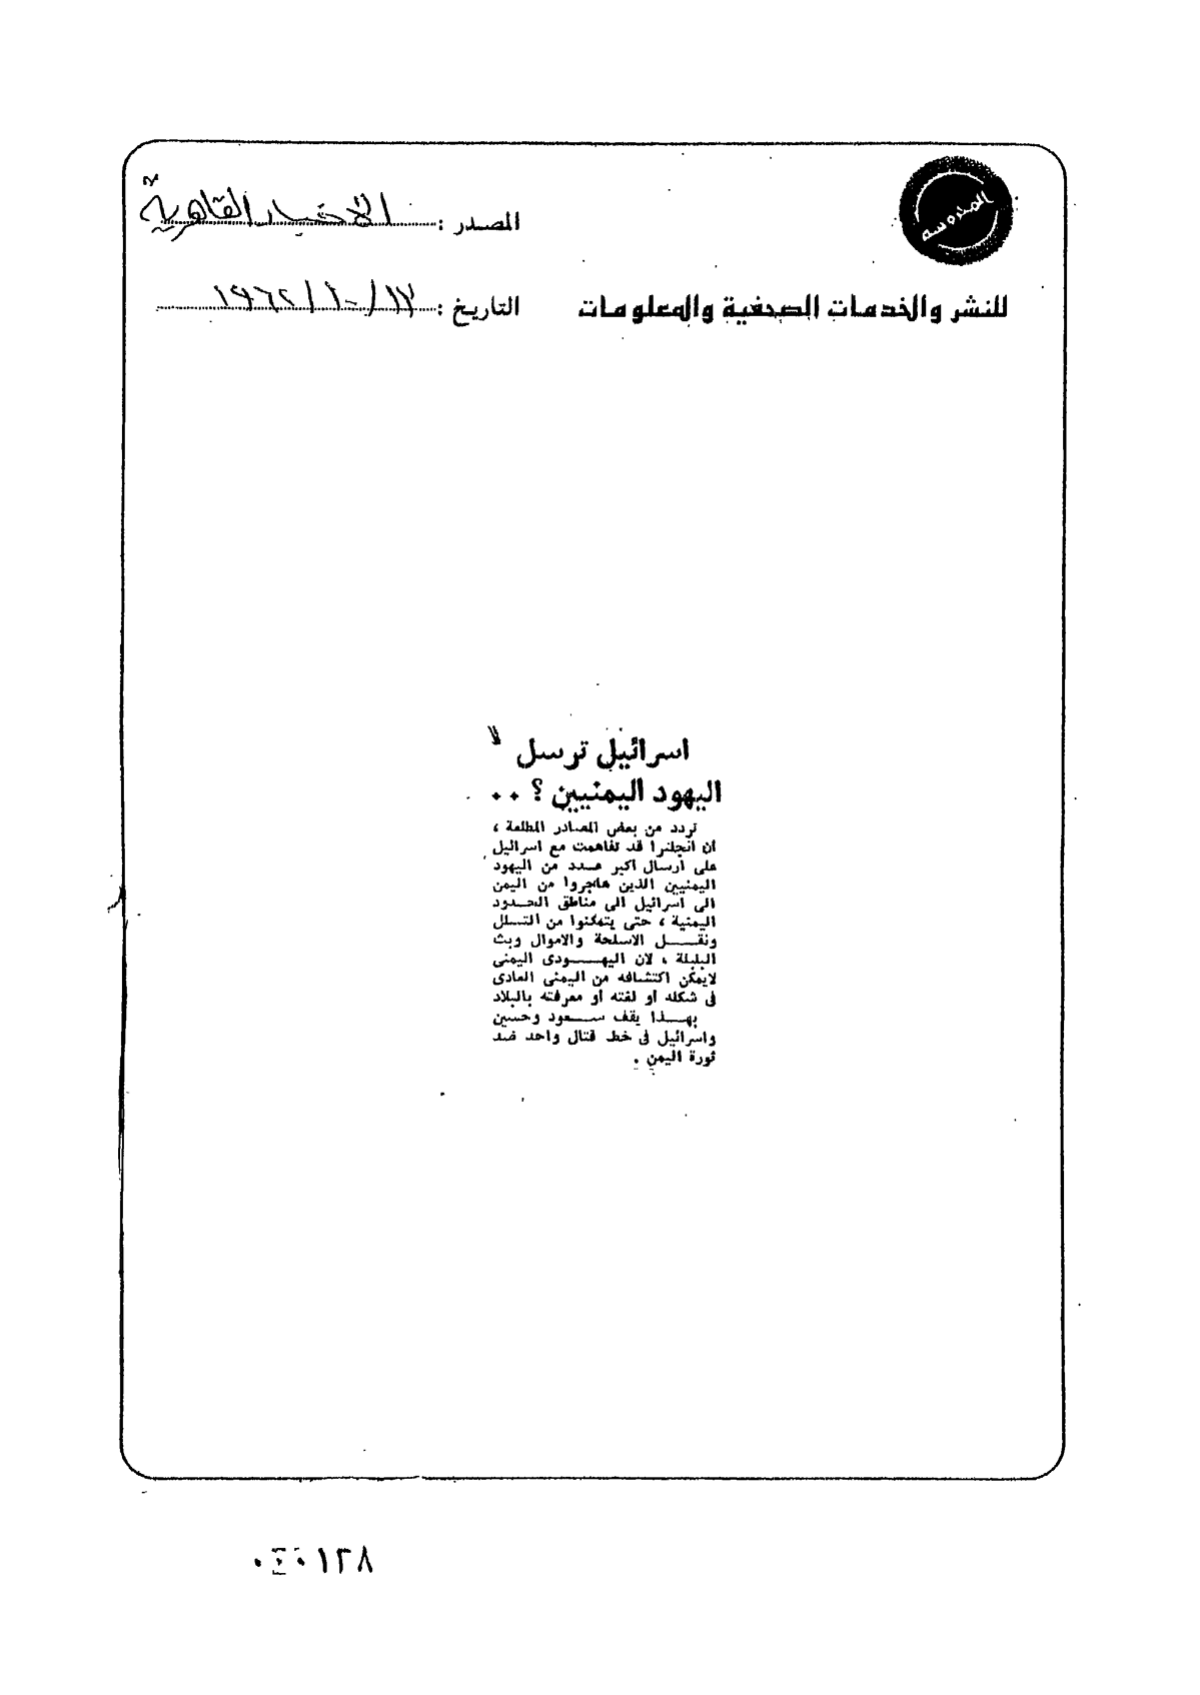 المحروسة
المصدر : الاخبار القاهرية
للنشر والخدمات الصحفية والمعلومات
التاريخ : ١٧/١٠/١٩٦٢
اسرائيل ترسل
اليهود اليمنيين ؟ ..
تردد من بعض المصادر المطلعة ،
ان انجلترا قد تفاهمت مع اسرائيل
على ارسال اكبر عدد من اليهود
اليمنيين الذين هاجروا من اليمن
الى اسرائيل الى مناطق الحدود
اليمنية ، حتى يتمكنوا من التسلل
ونقل الاسلحة والاموال وبث
البلبلة ، لان اليهودى اليمنى
لايمكن اكتشافه من اليمنى العادى
فى شكله أو لغته أو معرفته بالبلاد
بهذا يقف سعود وحسين
واسرائيل فى خط قتال واحد ضد
ثورة اليمن .
١٢٨